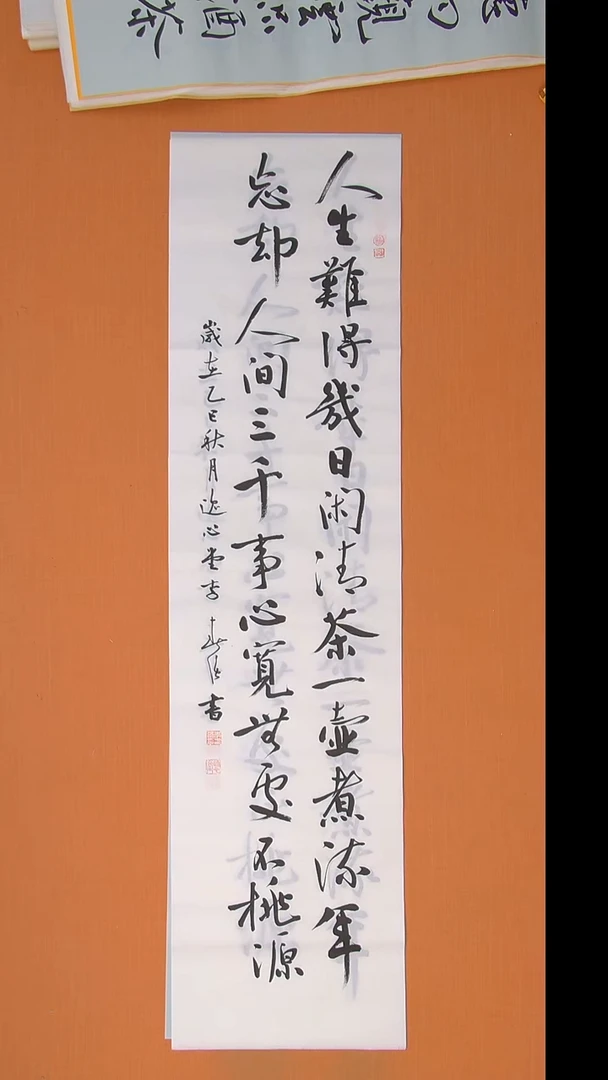 人生難得幾日闲清茶一壶煮流年
忘却人间三千事心寬無处不桃源
歲在乙巳秋月逸心堂李春
書